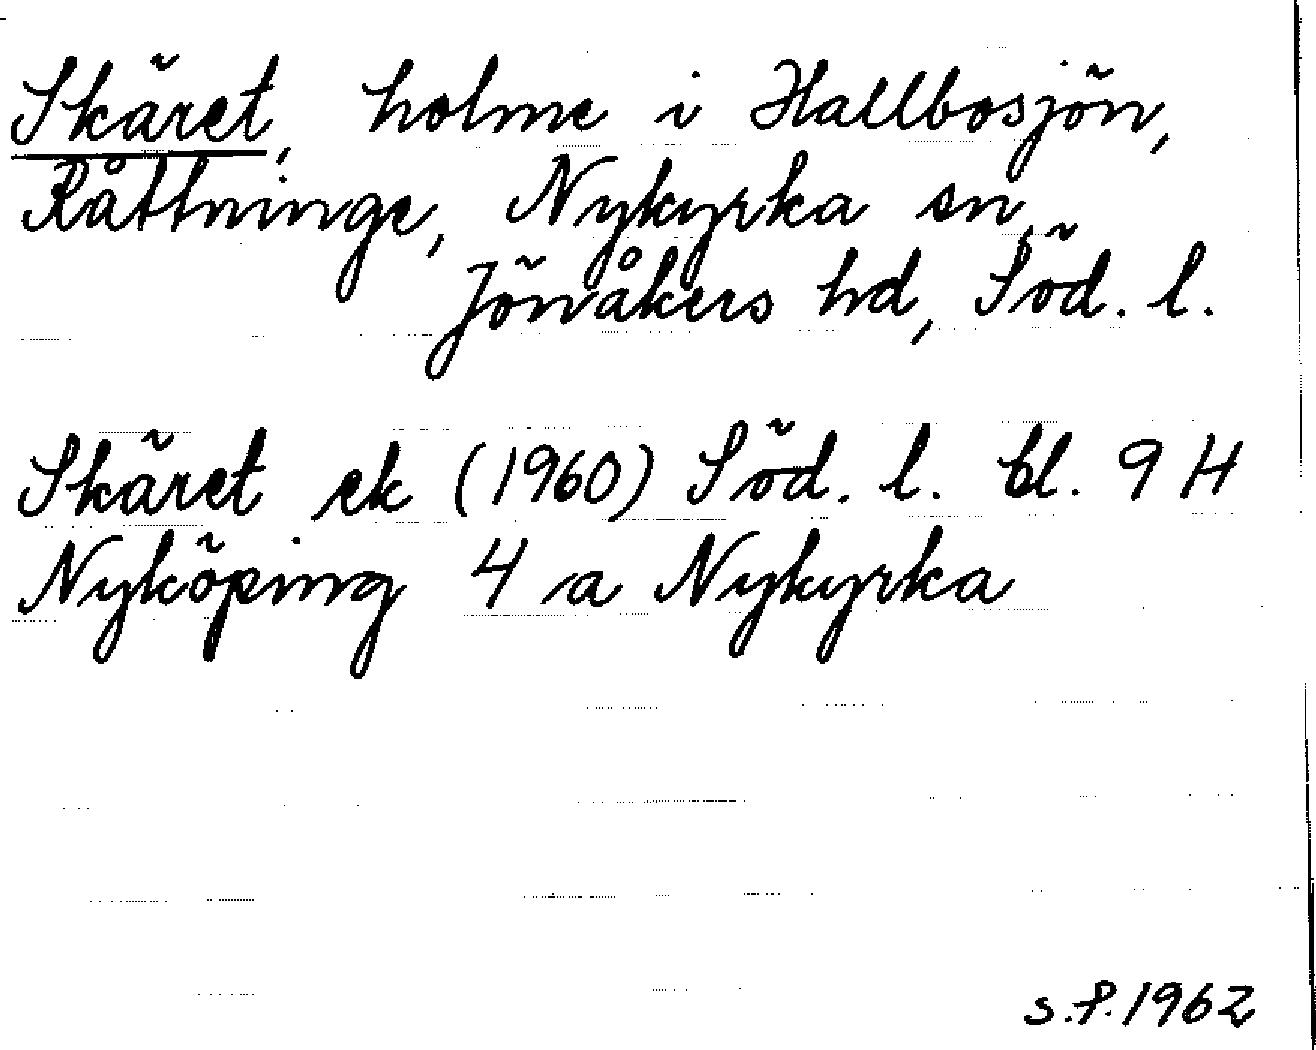 Skäret, holme i Hallbosjön,
Råttninge, Nykyrka sn,
Jönåkers hd, Söd. l.
Skäret ek (1960) Söd. l. bl. 9 H
Nyköping 4 a Nykyrka
s.P. 1962